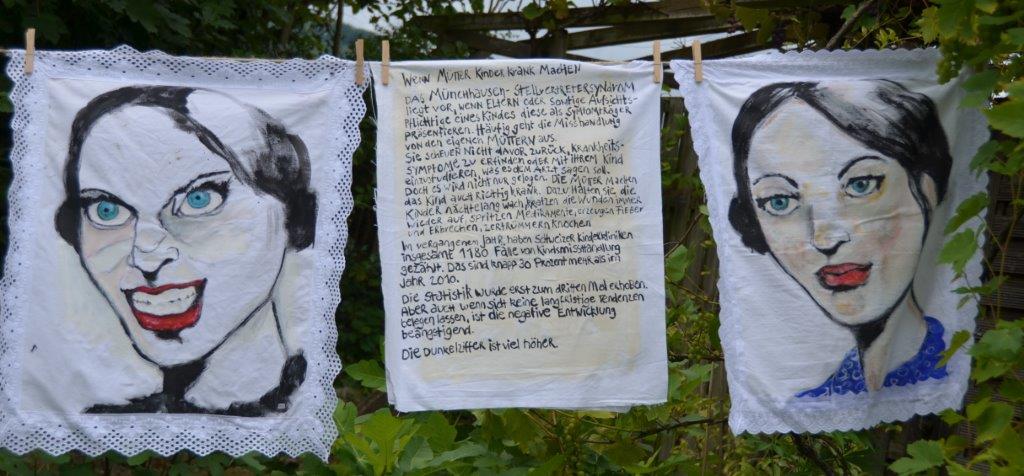 Wenn Mütter Kinder krank machen
Das Münchhausen-Stellvertretersyndrom
liegt vor, wenn Eltern oder sonstige Aufsichts-
pflichtige eines Kindes diese als Symptomträger
präsentieren. Häufig geht die Misshandlung
von den eigenen Müttern aus.
Sie scheuen nicht davor zurück, Krankheits-
symptome zu erfinden oder mit ihrem Kind
einzustudieren, was es dem Arzt sagen soll.
Doch es wird nicht nur gelogen. Die Mütter machen
das Kind auch richtig krank. Dazu halten sie die
Kinder nächtelang wach, kratzen die Wunden immer
wieder auf, spritzen Medikamente, erzeugen Fieber
und Erbrechen, zertrümmern Knochen
Im vergangenen Jahr haben Schweizer Kinderkliniken
insgesamt 1180 Fälle von Kindsmisshandlung
gezählt. Das sind knapp 30 Prozent mehr als im
Jahr 2010.
Die Statistik wurde erst zum dritten Mal erhoben.
Aber auch wenn sich keine langfristige Tendenzen
belegen lassen, ist die negative Entwicklung
beängstigend.
Die Dunkelziffer ist viel höher.